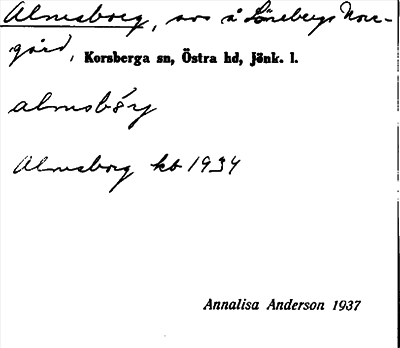 Almsborg, avs å Löneberga Norr-
gård, Korsberga sn, Östra hd, Jönk. l.
almsbǒrj
Almsborg kb 1934
Annalisa Anderson 1937